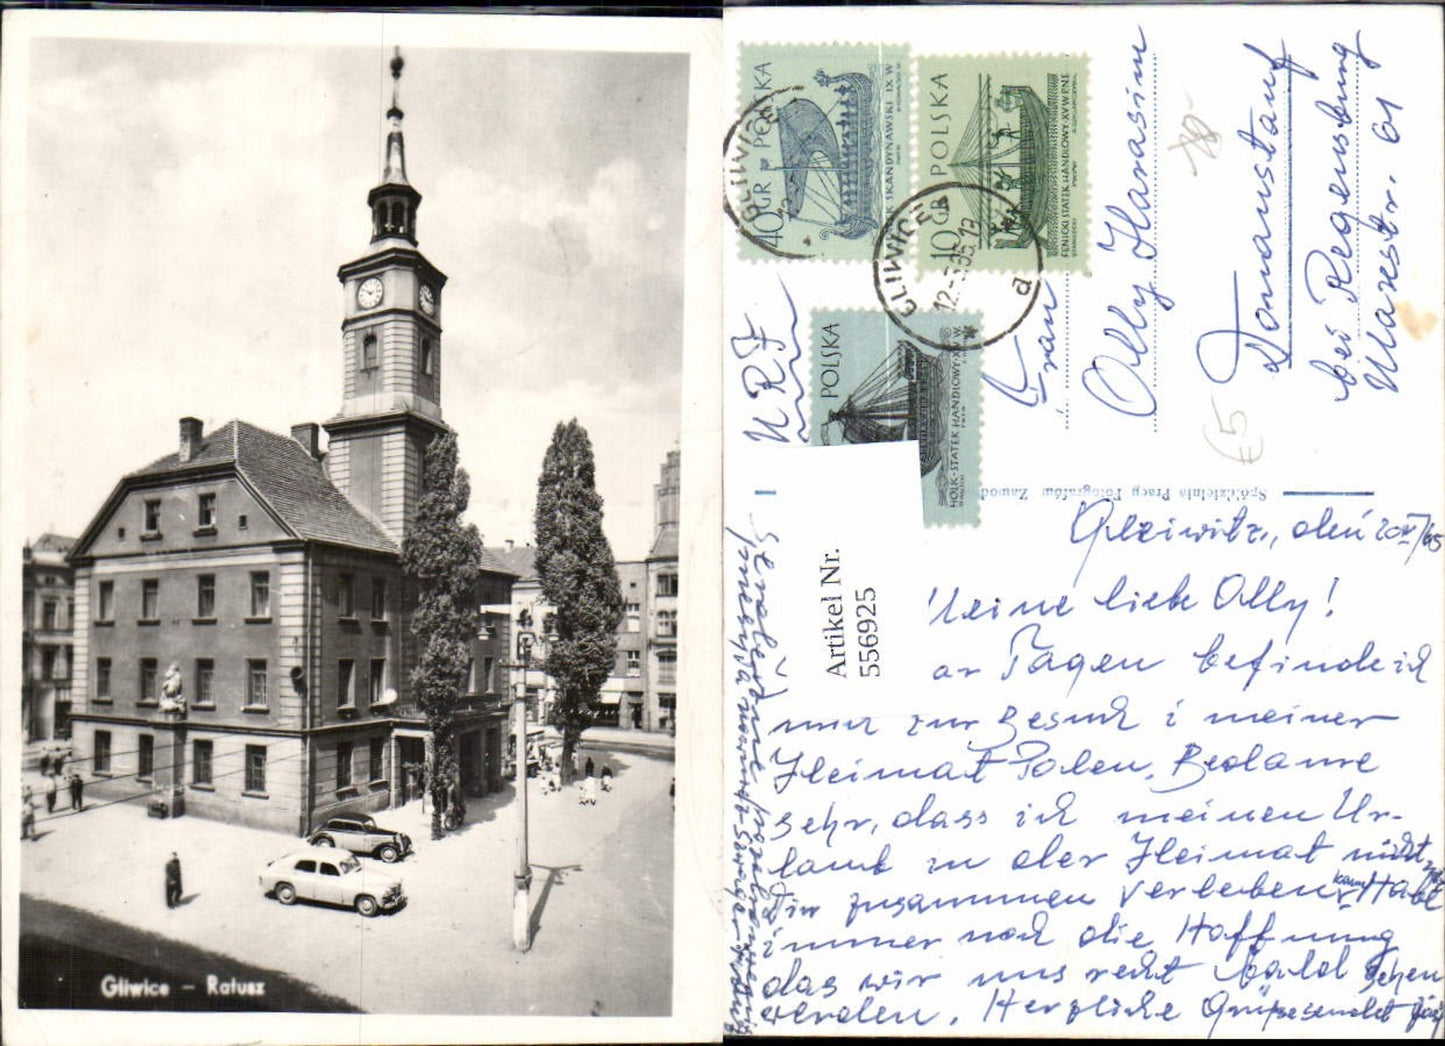 Gliwice - Ratusz
POLSKA
40 GR
SKANDYNAWSKI IX W
POLSKA
10 GR
FENICKI STATEK HANDLOWY-XV W P.N.E.
POLSKA
HOLK-STATEK HANDLOWY-XIV W.
GLIWICE
GLIWICE
a
NRF
Frau
Olly Harasim
Donaustauf
bei Regensburg
Marxstr. 61
€5
Spółdzielnia Pracy Fotografów Zawodow
Artikel Nr.
556925
Gleiwitz, den 20 V/65
Meine liebe Olly!
Tagen befinde ich
mich zur Besuch i meiner
Heimat Polen, Bedaure
sehr, dass ich meinen Ur-
laub in der Heimat nicht mit
Dir zusammen verleben kann. Habe
immer noch die Hoffnung
das wir uns recht bald sehen
werden. Herzliche Grüße sendet